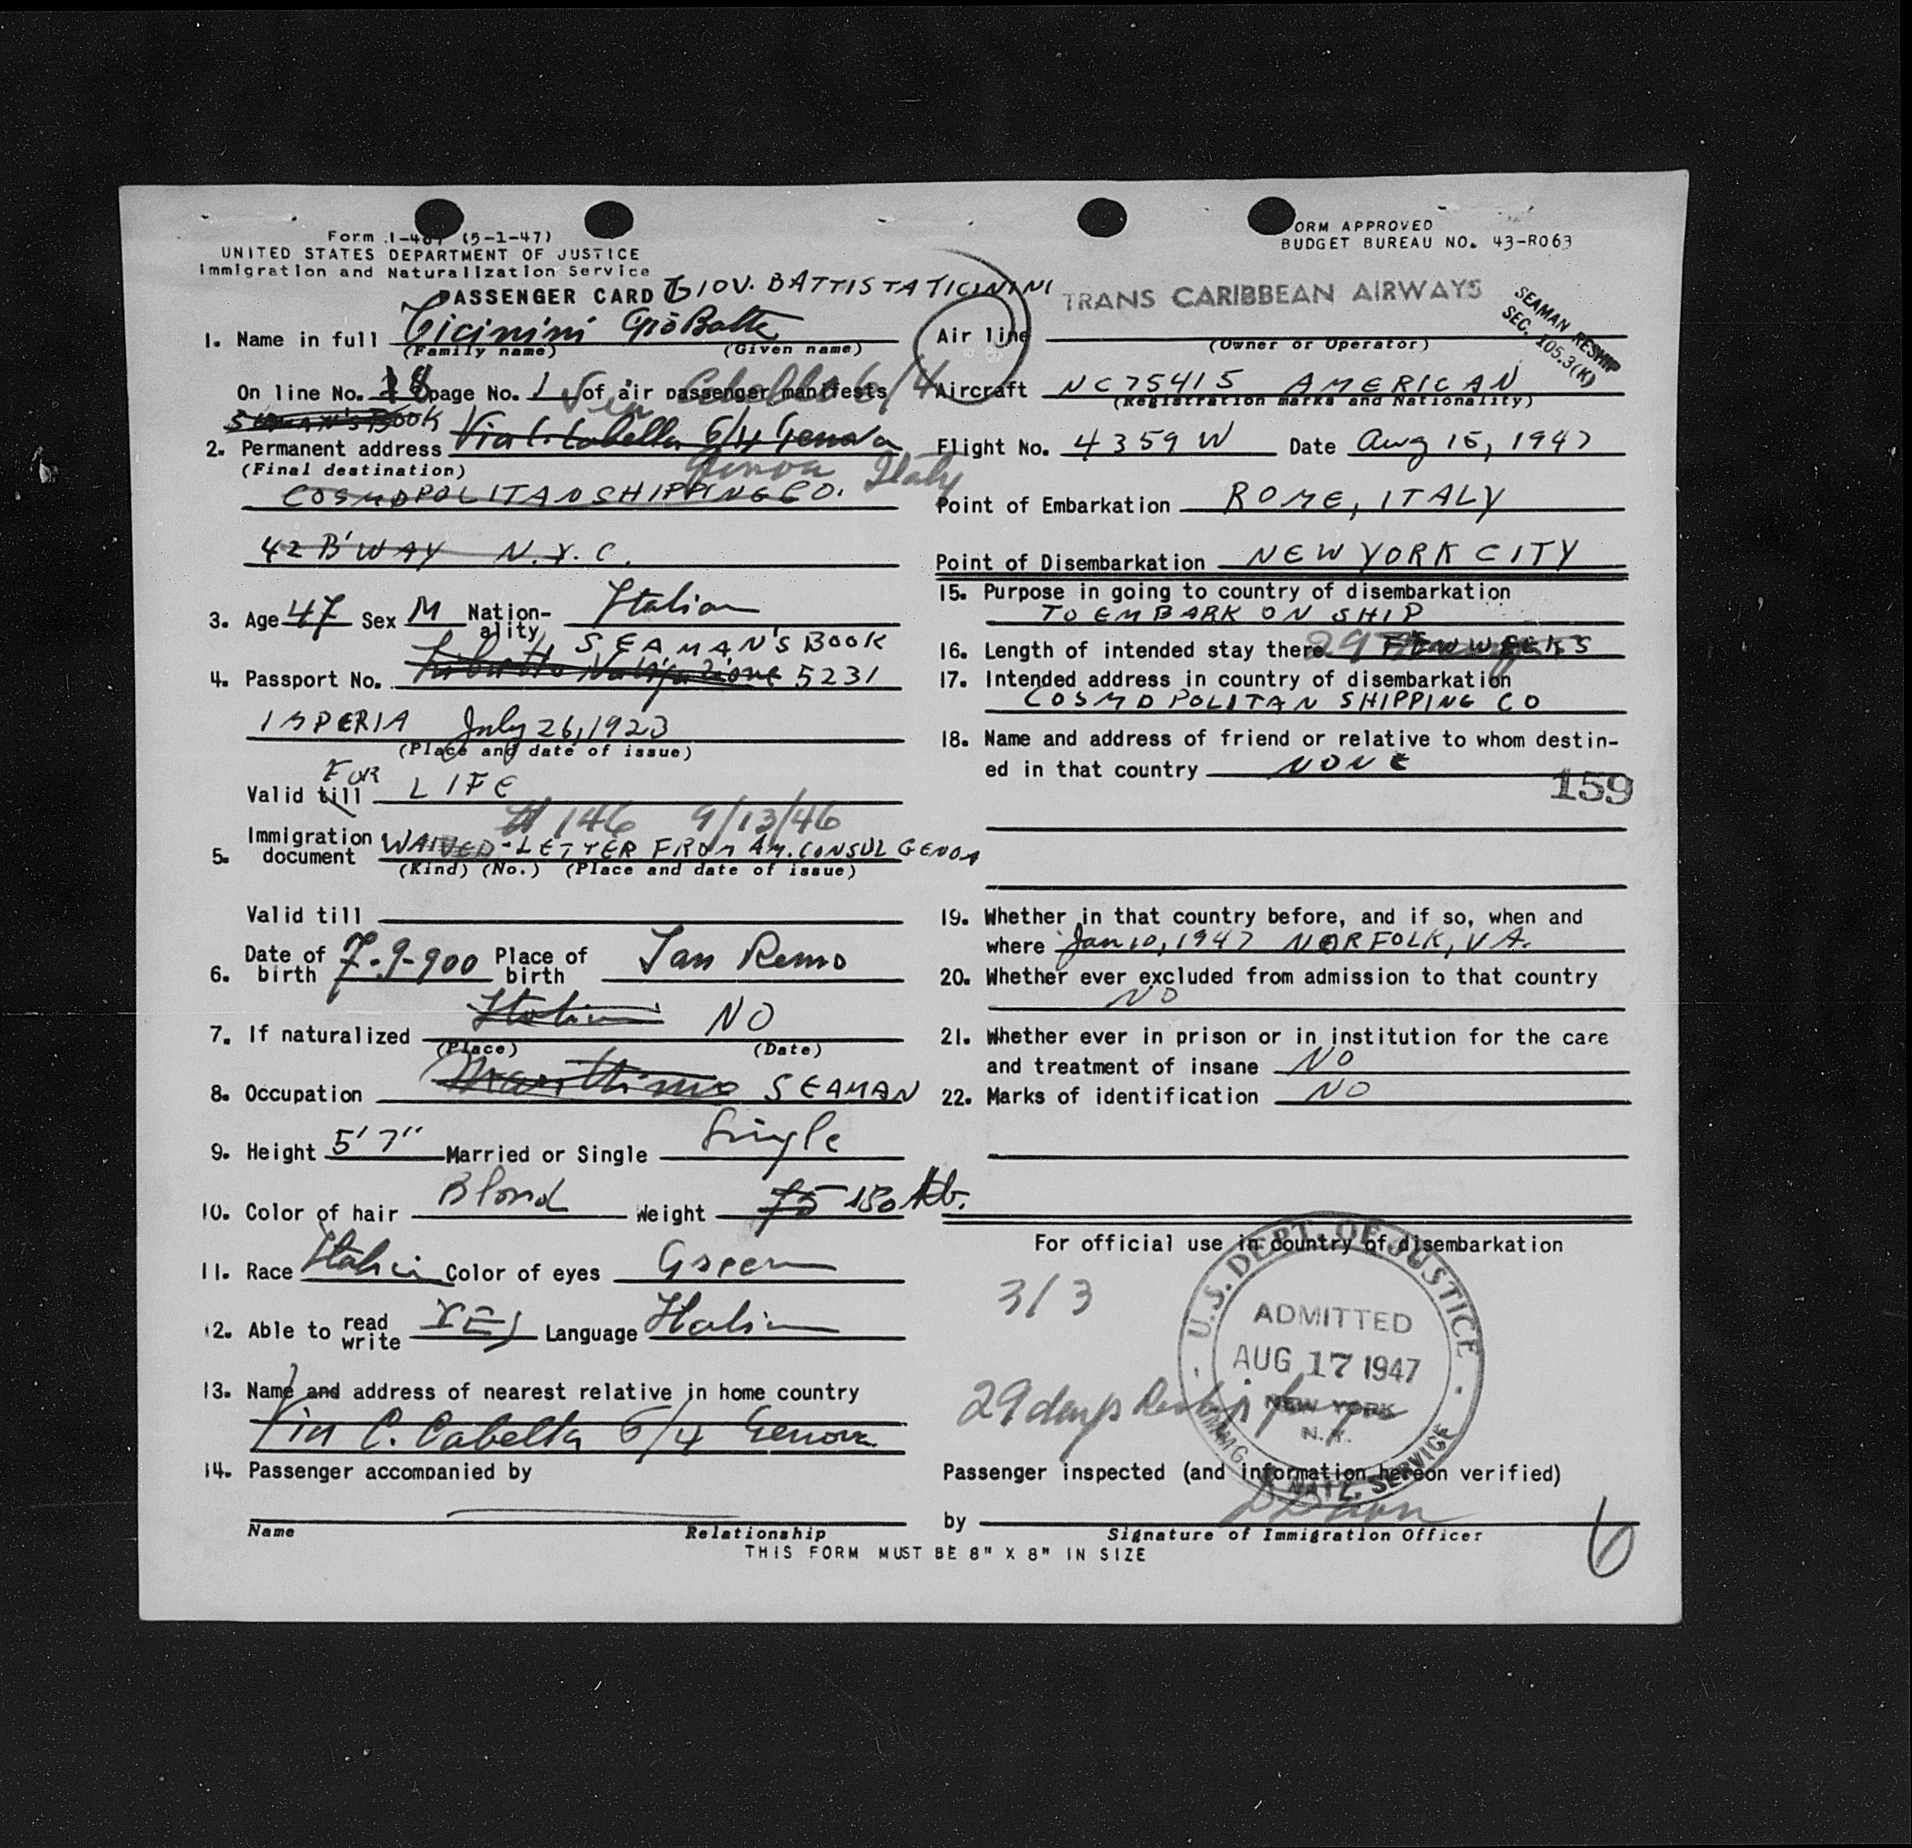 Form I-467 (5-1-47)
UNITED STATES DEPARTMENT OF JUSTICE
Immigration and Naturalization Service
FORM APPROVED
BUDGET BUREAU NO. 43-R063
PASSENGER CARD GIOV. BATTISTA TICININI
1. Name in full Ticinini Gio Batta
(Family name) (Given name)
On line No. 18 page No. 1 of air passenger manifests
Via Cabella 6/4
SEAMAN'S BOOK
2. Permanent address Via C. Cabella 6/4 Genova
(Final destination)
Genoa Italy
COSMOPOLITAN SHIPPING CO.
42 B'WAY N.Y.C.
3. Age 47 Sex M Nation-ality Italian
SEAMAN'S BOOK
4. Passport No. Libretto Navigazione 5231
IMPERIA July 26, 1923
(Place and date of issue)
FOR
Valid till LIFE
# 146 9/13/46
5. Immigration document WAIVED-LETTER FROM AM. CONSUL GENOA
(Kind) (No.) (Place and date of issue)
Valid till
6. Date of birth 7-9-900 Place of birth San Remo
7. If naturalized NO
(Place) (Date)
8. Occupation Marittimo SEAMAN
9. Height 5'7" Married or Single Single
10. Color of hair Blond Weight 75 150 lb.
11. Race Italian Color of eyes Green
12. Able to read write YES Language Italian
13. Name and address of nearest relative in home country
Via C. Cabella 6/4 Genova
14. Passenger accompanied by
Name Relationship
TRANS CARIBBEAN AIRWAYS
SEAMAN RESHIP
SEC. 105.3(K)
Air line
(Owner or Operator)
Aircraft NC75415 AMERICAN
(Registration marks and Nationality)
Flight No. 4359 W Date Aug 15, 1947
Point of Embarkation ROME, ITALY
Point of Disembarkation NEW YORK CITY
15. Purpose in going to country of disembarkation
TO EMBARK ON SHIP
16. Length of intended stay there 29 FEW WEEKS
17. Intended address in country of disembarkation
COSMOPOLITAN SHIPPING CO
18. Name and address of friend or relative to whom destin-
ed in that country NONE
159
19. Whether in that country before, and if so, when and
where Jan 10, 1947 NORFOLK, VA.
20. Whether ever excluded from admission to that country
NO
21. Whether ever in prison or in institution for the care
and treatment of insane NO
22. Marks of identification NO
For official use in country of disembarkation
3/3
U.S. DEPT. OF JUSTICE
ADMITTED
AUG 17 1947
NEW YORK
N.Y.
IMMIG. & NATZ. SERVICE
29 days
Passenger inspected (and information hereon verified)
by
Signature of Immigration Officer
6
THIS FORM MUST BE 8" X 8" IN SIZE